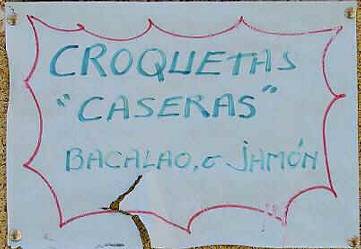 CROQUETAS
"CASERAS"
BACALAO, o JAMÓN